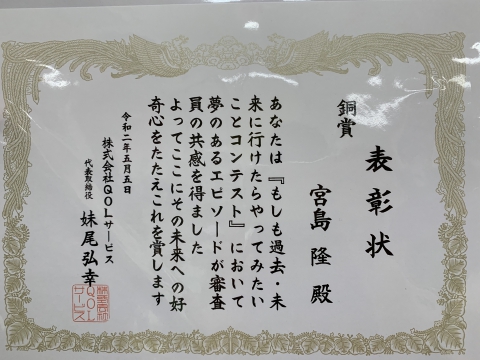 表彰状
銅賞
宮島 隆 殿
あなたは『もしも過去・未
来に行けたらやってみたい
ことコンテスト』において
夢のあるエピソードが審査
員の共感を得ました
よってここにその未来への好
奇心をたたえこれを賞します
令和二年五月五日
株式会社QOLサービス
代表取締役 妹尾弘幸
株式会社
QOL
サービス